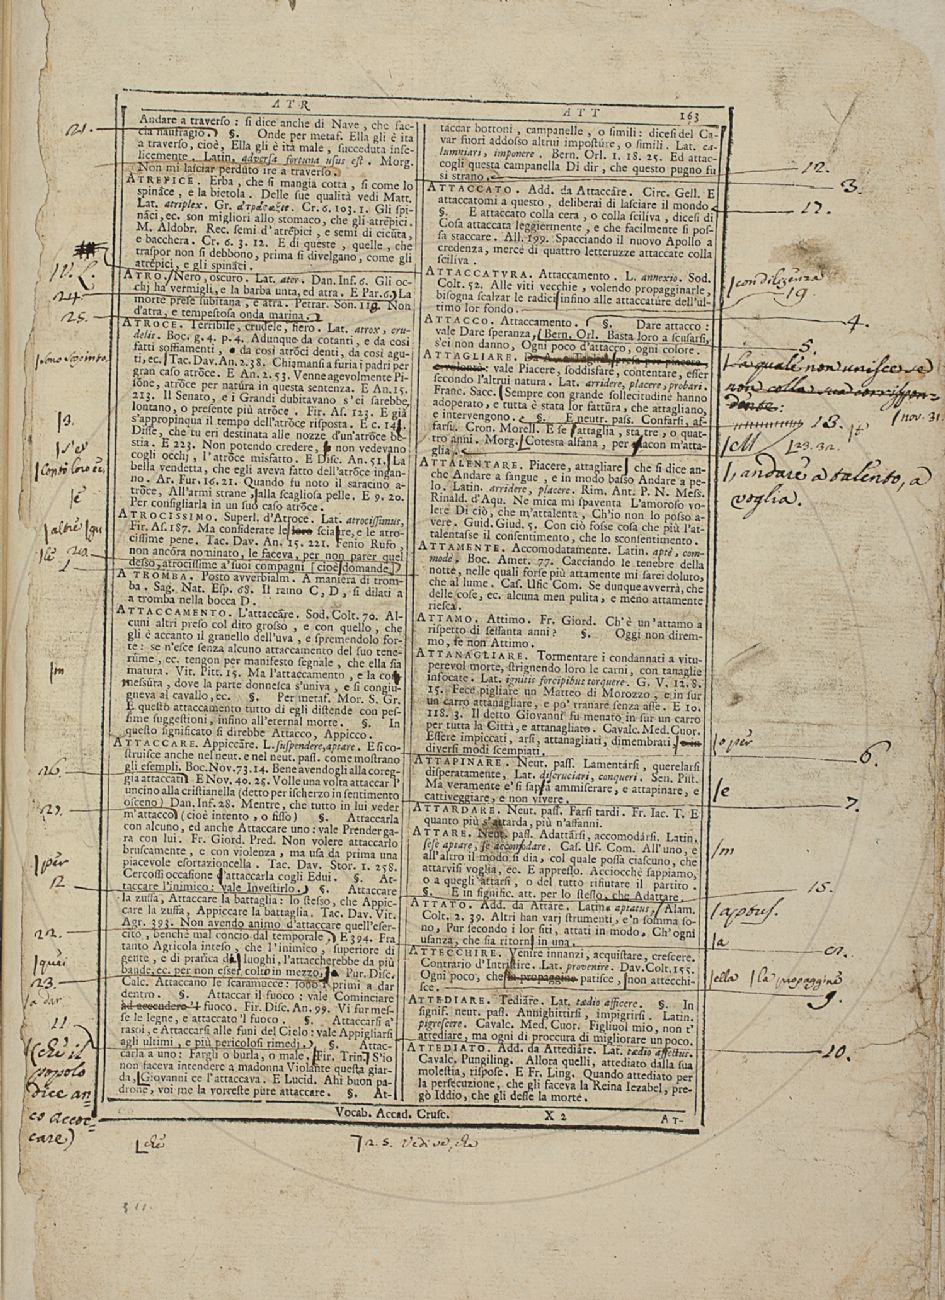 ATR
Andare a traverso: si dice anche di Nave, che fac-
cia naufragio. §. Onde per metaf. Ella gli è ita
a traverso, cioè, Ella gli è ita male, succeduta infe-
licemente. Latin. adversa fortuna usus est. Morg.
Non mi lasciar perduto ire a traverso.
ATREFICE. Erba, che si mangia cotta, si come lo
spinâce, e la bietola. Delle sue qualità vedi Matt.
Lat. atriplex. Gr. Cr. 6. 103. 1. Gli spi-
nâci, ec. son migliori allo stomaco, che gli atrèpici.
M. Aldobr. Rec. semi d'atrèpici, e semi di cicùta,
e bacchera. Cr. 6. 3. 12. E di queste, quelle, che
traspor non si debbono, prima si divelgano, come gli
atrèpici, e gli spinâci.
ATRO. Nero, oscuro. Lat. ater. Dan. Inf. 6. Gli oc-
chj ha vermigli, e la barba unta, ed atra. E Par. 6. La
morte prese subitana, e atra. Petrar. Son. 119. Non
d'atra, e tempestosa onda marina.
ATROCE. Terribile, crudele, fiero. Lat. atrox, cru-
delis. Boc. g. 4. p. 4. Adunque da cotanti, e da così
fatti soffiamenti, da così atròci denti, da così agu-
ti, ec. Tac. Dav. An. 2. 38. Chiamansi a furia i padri per
gran caso atròce. E An. 2. 53. Venne agevolmente Pi-
sône, atròce per natùra in questa sentenza. E An. 15.
213. Il Senato, e i Grandi dubitavano s'ei sarebbe
lontano, o presente più atròce. Fir. As. 123. E già
s'appropinqua il tempo dell'atròce risposta. E c. 14
Disse, che tu eri destinata alle nozze d'un'atròce be-
stia. E 223. Non potendo credere, non vedevano
cogli occhj, l'atròce misfatto. E Disc. An. 51. La
bella vendetta, che egli aveva fatto dell'atròce ingan-
no. Ar. Fur. 16. 21. Quando fu noto il saracino a-
tròce, All'armi strane, alla scagliosa pelle. E 9. 20.
Per consigliarla in un suo caso atròce.
ATROCISSIMO. Superl. d'Atroce. Lat. atrocissimus,
Fir. As. 187. Ma considerate le loro sciatre, e le atro-
cissime pene. Tac. Dav. An. 15. 221. Fenio Rufo,
non ancòra nominato, le faceva, per non parer quel
desso, atrocissime a'suoi compagni [cioè domande.]
A TROMBA. Posto avverbialm. A maniera di trom-
ba, Sag. Nat. Esp. 68. Il ramo C, D, si dilati a
a tromba nella bocca D.
ATTACCAMENTO. L'attaccâre. Sod. Colt. 70. Al-
cuni altri preso col dito grosso, e con quello, che
gli è accanto il granello dell'uva, e spremendolo for-
te: se n'esce senza alcuno attaccamento del suo tene-
rùme, ec. tengon per manifesto segnale, che ella sia
matura. Vit. Pitt. 15. Ma l'attaccamento, e la com
messùra, dove la parte donnesca s'univa, e si congiu-
gneva al cavallo, ec. §. Per metaf. Mor. S. Gr.
E questo attaccamento tutto di egli distende con pes-
sime suggestioni, infino all'eternal morte. §. In
questo significato si direbbe Attacco, Appicco.
ATTACCARE. Appiccâre. L. suspendere, aptare. E si co-
struisce anche nel neut. e nel neut. pass. come mostrano
gli esempli. Boc. Nov. 73. 14. Bene avendogli alla coreg-
gia attaccati. E Nov. 40. 25. Volle una volta attaccar l'
uncino alla cristianella (detto per ischerzo in sentimento
osceno) Dan. Inf. 28. Mentre, che tutto in lui veder
m'attacco (cioè intento, o fisso) §. Attaccarla
con alcuno, ed anche Attaccare uno: vale Prender ga-
ra con lui. Fr. Giord. Pred. Non volere attaccarlo
bruscamente, e con violenza, ma usa da prima una
piacevole esortazioncella. Tac. Dav. Stor. 1. 258.
Cercossi occasione d'attaccarla cogli Edui. §. At-
taccare l'inimico: vale Investirlo. §. Attaccare
la zuffa, Attaccare la battaglia: lo stesso, che Appic-
care la zuffa, Appiccare la battaglia. Tac. Dav. Vit.
Agr. 393. Non avendo animo d'attaccare quell'eser-
cito, benchè mal concio dal temporale. E 394. Fra
tanto Agricola inteso, che l'inimico, superiore di
gente, e di pratica di luoghi, l'attaccherebbe da più
bande, ec. per non esser colto in mezzo. Pur. Disc.
Calc. Attaccano le scaramucce: sono i primi a dar
dentro. §. Attaccar il fuoco: vale Cominciare
ad accendere 'l fuoco. Fir. Disc. An. 99. Vi fur mes-
se le legne, e attaccato 'l fuoco. §. Attaccarsi a'
rasoi, e Attaccarsi alle funi del Cielo: vale Appigliarsi
agli ultimi, e più pericolosi rimedj. §. Attac-
carla a uno: Fargli o burla, o male. Fir. Trin. S'io
non faceva intendere a madonna Violante questa giar-
da, Giovanni ce l'attaccava. E Lucid. Ahi buon pa-
drone, voi me la vorreste pure attaccare. §. At-
ATT
163
taccar bottoni, campanelle, o simili: dicesi del Ca-
var fuori addosso altrui imposture, o simili. Lat. ca-
lumniari, imponere. Bern. Orl. 1. 18. 25. Ed attac-
cogli questa campanella Di dir, che questo pugno fu
sì strano.
ATTACCATO. Add. da Attaccâre. Circ. Gell. E
attaccatomi a questo, deliberai di lasciare il mondo.
§. E attaccato colla cera, o colla sciliva, dicesi di
Cosa attaccata leggiermente, e che facilmente si pos-
sa staccare. All. 199. Spacciando il nuovo Apollo a
credenza, mercè di quattro letteruzze attaccate colla
sciliva.
ATTACCATVRA. Attaccamento. L. annexio. Sod.
Colt. 52. Alle viti vecchie, volendo propagginarle,
bisogna scalzar le radici infino alle attaccature dell'ul-
timo lor fondo.
ATTACCO. Attaccamento. §. Dare attacco:
vale Dare speranza. Bern. Orl. Basta loro a scusarsi,
s'ei non danno, Ogni poco d'attacco, ogni colore.
ATTAGLIARE.
vale Piacere, soddisfare, contentare, esser
secondo l'altrui natura. Lat. arridere, placere, probari.
Franc. Sacc. Sempre con grande sollecitudine hanno
adoperato, e tutta è stata lor fattùra, che attagliano,
e intervengono. §. E neutr. pass. Confarsi, af-
farsi. Cron. Morell. E se s'attaglia, sta tre, o quat-
tro anni. Morg. Cotesta alfana, per Macon m'atta-
glia.
ATTALENTARE. Piacere, attagliare che si dice an-
che Andare a sangue, e in modo basso Andare a pe-
lo. Latin. arridere, placere. Rim. Ant. P. N. Mess.
Rinald. d'Aqu. Ne mica mi spaventa L'amoroso vo-
lere Di ciò, che m'attalenta, Ch'io non lo posso a-
vere. Guid. Giud. 5. Con ciò fosse cosa che più l'at-
talentasse il consentimento, che lo sconsentimento.
ATTAMENTE. Accomodatamente. Latin. aptè, com-
modè. Boc. Amet. 77. Cacciando le tenebre della
notte, nelle quali forse più attamente mi sarei doluto,
che al lume. Cas. Ufic Com. Se dunque avverrà, che
delle cose, ec. alcuna men pulita, e meno attamente
riesca.
ATTAMO. Attimo. Fr. Giord. Ch'è un'attamo a
rispetto di sessanta anni? §. Oggi non direm-
mo, se non Attimo.
ATTANAGLIARE. Tormentare i condannati a vitu-
perevol morte, strignendo loro le carni, con tanaglie
infocate. Lat. ignitis forcipibus torquere. G. V. 12. 8.
15. Fece pigliare un Matteo di Morozzo, e in sur
un carro attanagliare, e po' tranare senza asse. E 10.
118. 3. Il detto Giovanni fu menato in sur un carro
per tutta la Città, e attanagliato. Cavalc. Med. Cuor.
Essere impiccati, arsi, attanagliati, dimembrati,
diversi modi scempiati.
ATTAPINARE. Neut. pass. Lamentârsi, querelarsi
disperatamente, Lat. discruciari, conqueri. Sen. Pist.
Ma veramente e' si sappia ammiserare, e attapinare, e
cattiveggiare, e non vivere.
ATTARDARE. Neut. pass. Farsi tardi. Fr. Iac. T. E
quanto più s'attarda, più n'affanni.
ATTARE. Neut. pass. Adattârsi, accomodârsi. Latin.
sese aptare, se accommodare. Cas. Uf. Com. All'uno, e
all'altro il modo si dia, col quale possa ciascuno, che
attarvisi voglia, ec. E appresso. Acciocchè sappiamo,
o a quegli attarsi, o del tutto rifiutare il partito.
§. E in signific. att. per lo stesso, che Adattare.
ATTATO. Add. da Attâre. Latin. aptatus, Alam.
Colt. 2. 39. Altri han varj strumenti, e 'n somma so-
no, Pur secondo i lor siti, attati in modo, Ch'ogni
usanza, che sia ritorni in una.
ATTECCHIRE. Venire innanzi, acquistare, crescere.
Contrario d'Intristire. Lat. provenire. Dav. Colt. 155.
Ogni poco, che si propaggina patisce, non attecchi-
sce.
ATTEDIARE. Tediâre. Lat. tædio afficere. §. In
signif. neut. pass. Annighittirsi, impigrirsi. Latin.
pigrescere. Cavalc. Med. Cuor. Figliuol mio, non t'
attediare, ma ogni di proccura di migliorare un poco.
ATTEDIATO. Add. da Attediâre. Lat. tædio affectus.
Cavalc. Pungiling. Allora quelli, attediato dalla sua
molestia, rispose. E Fr. Ling. Quando attediato per
la persecuzione, che gli faceva la Reina Iezabel, pre-
gò Iddio, che gli desse la morte.
Vocab. Accad. Crusc.
X 2
AT-
21.
24.
25.
20.
1
26.
per
12
22.
23.
a dar
11
(che il
popolo
dice an-
co accoc-
care)
12.
3.
17.
con diligenza
19
4.
5
la quale non unisce se
non colla sua corrispon-
dente:
18.
nov. 31.
23. 32.
, andare a talento, a
voglia.
o per
6.
e
7.
m
15.
aptus.
a
ella la propaggine
9.
10.
che